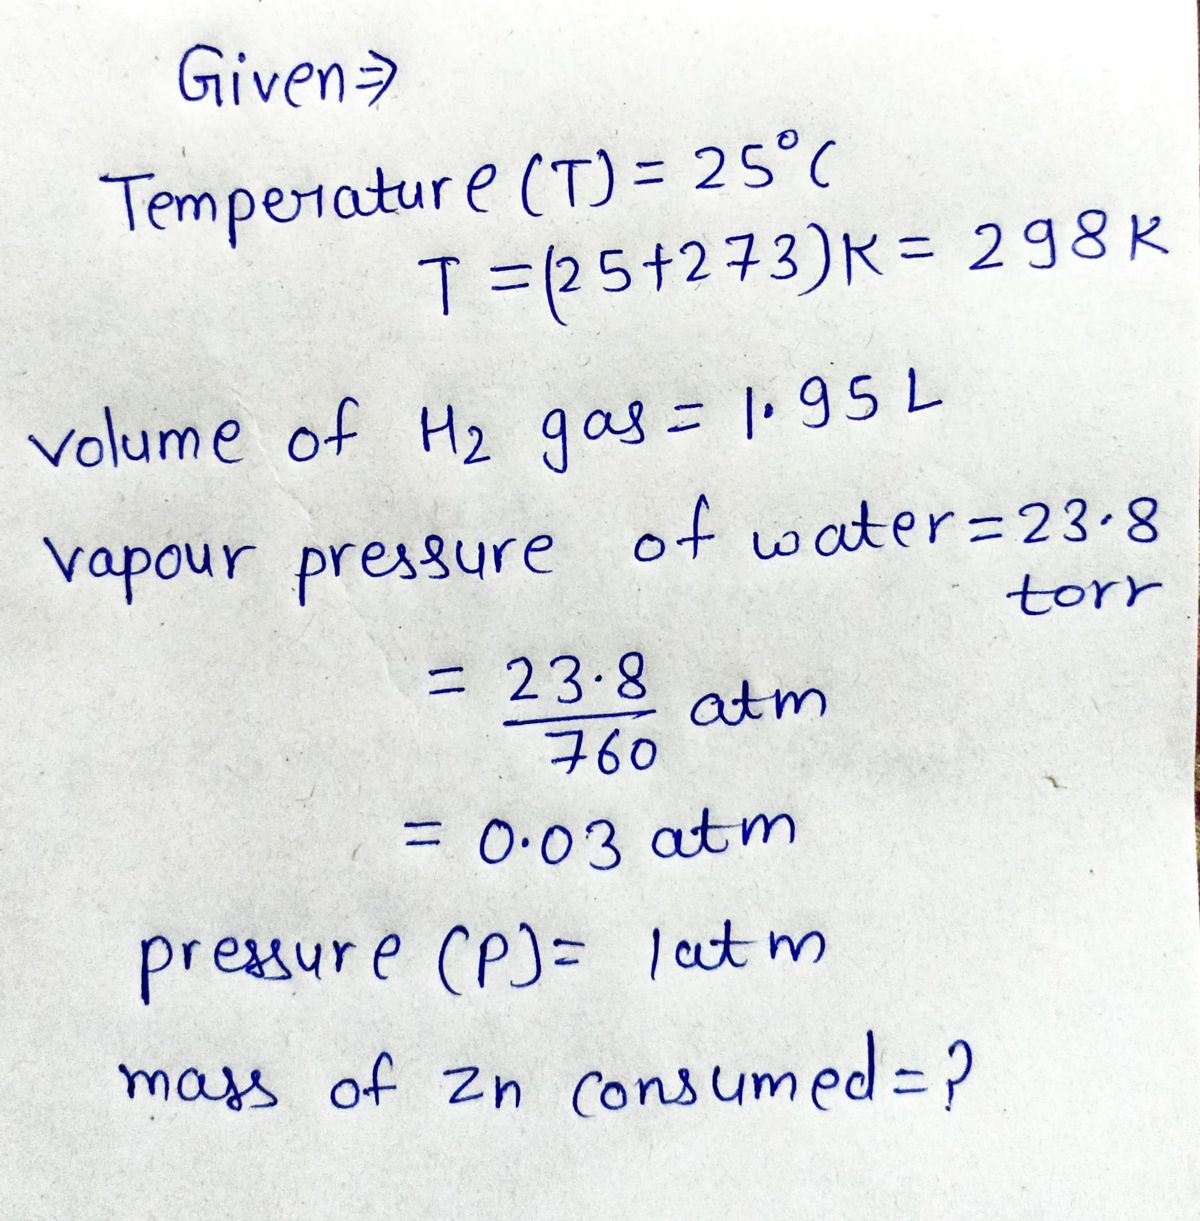 Given⇒
Temperature (T) = 25°C
T = (25+273)K = 298K
volume of H₂ gas = 1.95 L
vapour pressure of water = 23.8
torr
= 23.8/760 atm
= 0.03 atm
pressure (P) = 1atm
mass of Zn consumed = ?